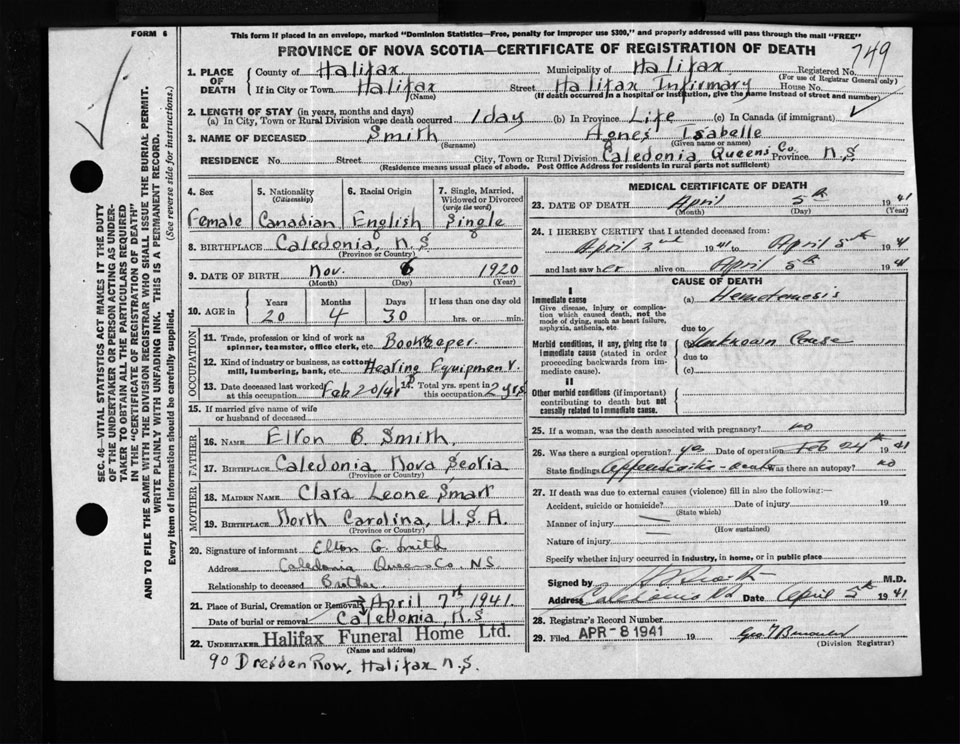 FORM 6
This form if placed in an envelope, marked "Dominion Statistics—Free, penalty for improper use $300," and properly addressed will pass through the mail "FREE"
PROVINCE OF NOVA SCOTIA—CERTIFICATE OF REGISTRATION OF DEATH
749
1. PLACE OF DEATH County of Halifax Municipality of Halifax Registered No.
(For use of Registrar General only)
If in City or Town Halifax Street Halifax Infirmary House No.
(Name) (If death occurred in a hospital or institution, give the name instead of street and number)
2. LENGTH OF STAY (in years, months and days)
(a) In City, Town or Rural Division where death occurred 1 day (b) In Province Life (c) In Canada (if immigrant)
3. NAME OF DECEASED Smith Agnes Isabelle
(Surname) (Given name or names)
RESIDENCE No. Street City, Town or Rural Division Caledonia, Queens Co Province N.S
(Residence means usual place of abode. Post Office Address for residents in rural parts not sufficient)
4. Sex Female
5. Nationality (Citizenship) Canadian
6. Racial Origin English
7. Single, Married, Widowed or Divorced (write the word) Single
8. BIRTHPLACE Caledonia, N.S
(Province or Country)
9. DATE OF BIRTH Nov. 6 1920
(Month) (Day) (Year)
10. AGE in Years Months Days If less than one day old
20 4 30 hrs. or min.
OCCUPATION
11. Trade, profession or kind of work as spinner, teamster, office clerk, etc. Bookkeeper.
12. Kind of industry or business, as cotton mill, lumbering, bank, etc. Heating Equipment.
13. Date deceased last worked at this occupation Feb 20/41 14. Total yrs. spent in this occupation 2 yrs
15. If married give name of wife or husband of deceased
FATHER
16. NAME Elton B. Smith,
17. BIRTHPLACE Caledonia Nova Scotia
MOTHER
18. MAIDEN NAME Clara Leone Smart
19. BIRTHPLACE North Carolina, U.S.A.
(Province or Country)
20. Signature of informant Elton G. Smith
Address Caledonia Queens Co, NS
Relationship to deceased Brother
21. Place of Burial, Cremation or Removal April 7th 1941.
Date of burial or removal Caledonia, N.S
22. UNDERTAKER Halifax Funeral Home Ltd.
(Name and address)
90 Dresden Row, Halifax N.S.
MEDICAL CERTIFICATE OF DEATH
23. DATE OF DEATH April 5th 1941
(Month) (Day) (Year)
24. I HEREBY CERTIFY that I attended deceased from:
April 3rd 1941 to April 5th 1941
and last saw her alive on April 5th 1941
CAUSE OF DEATH
I
Immediate cause (a) Hematemesis
(Give disease, injury or complication which caused death, not the mode of dying, such as heart failure, asphyxia, asthenia, etc.
due to
Morbid conditions, if any, giving rise to immediate cause (stated in order proceeding backwards from immediate cause).
Unknown Cause
due to
(c)
II
Other morbid conditions (if important) contributing to death but not causally related to immediate cause.
25. If a woman, was the death associated with pregnancy? no
26. Was there a surgical operation? yes Date of operation Feb 24th 1941
State findings Appendicitis-acute Was there an autopsy? no
27. If death was due to external causes (violence) fill in also the following:—
Accident, suicide or homicide? Date of injury 19
(State which)
Manner of injury
(How sustained)
Nature of injury
Specify whether injury occurred in industry, in home, or in public place
Signed by M.D.
Address Caledonia Date April 5th 1941
28. Registrar's Record No.
29. Filed APR -8 1941 19
(Division Registrar)
SEC. 46—VITAL STATISTICS ACT MAKES IT THE DUTY
OF THE UNDERTAKER OR PERSON ACTING AS UNDERTAKER
TO OBTAIN ALL THE PARTICULARS REQUIRED
IN THE "CERTIFICATE OF REGISTRATION OF DEATH"
AND TO FILE THE SAME WITH THE DIVISION REGISTRAR WHO SHALL ISSUE THE BURIAL PERMIT.
WRITE PLAINLY WITH UNFADING INK. THIS IS A PERMANENT RECORD.
Every item of information should be carefully supplied. (See reverse side for instructions.)